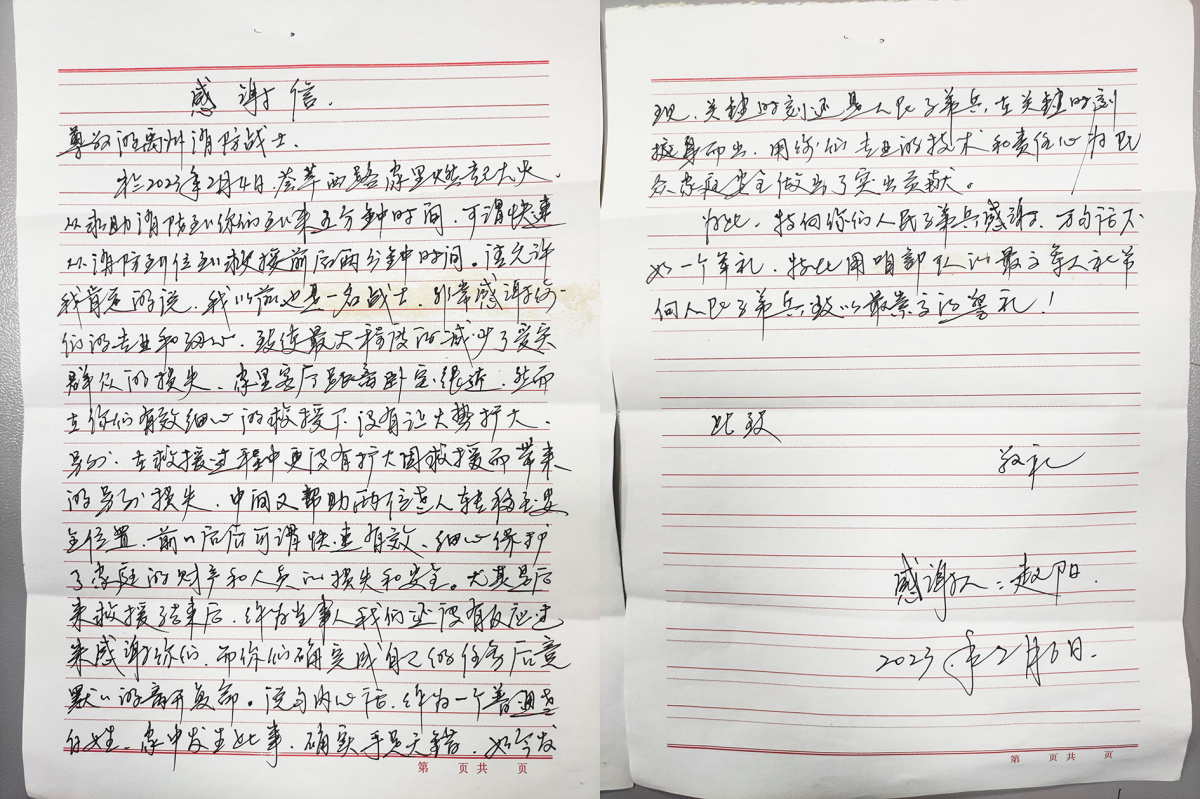 感谢信.
尊敬的离州消防战士.
于2023年2月4日.荟萃西路家里燃起大火.
从求助消防到你们到来五分钟时间，可谓快速
从消防到位到救援前后两分钟时间。请允许
我肯定的说，我以前也是一名战士，非常感谢你
们的专业和细心，致使最大程度的减少了受灾
群众的损失，家里客厅距离卧室很近，然而
在你们有效细心的救援下没有让火势扩大，
另外，在救援过程中更没有扩大因救援而带来
的另外损失，中间又帮助两位老人转移至安
全位置，前前后后可谓快速有效，细心保护
了家庭的财产和人员的损失和安全。尤其是后
来救援结束后，作为当事人我们还没有反应过
来感谢你们，而你们确完成自己的任务后竟
默默的离开复命。说句内心话，作为一个普通老
百姓，家中发生此事，确实手足无错，如今发
现，关键时刻还是人民子弟兵，在关键时刻
挺身而出，用你们专业的技术和责任心为民
众家庭安全做出了突出贡献。
为此，特向你们人民子弟兵感谢，万句话不
如一个军礼，特此用咱部队的最高军人礼节
向人民子弟兵致以最崇高的敬礼！
此致
敬礼
感谢人：赵阳.
2023年2月6日.
第 页共 页
第 页共 页